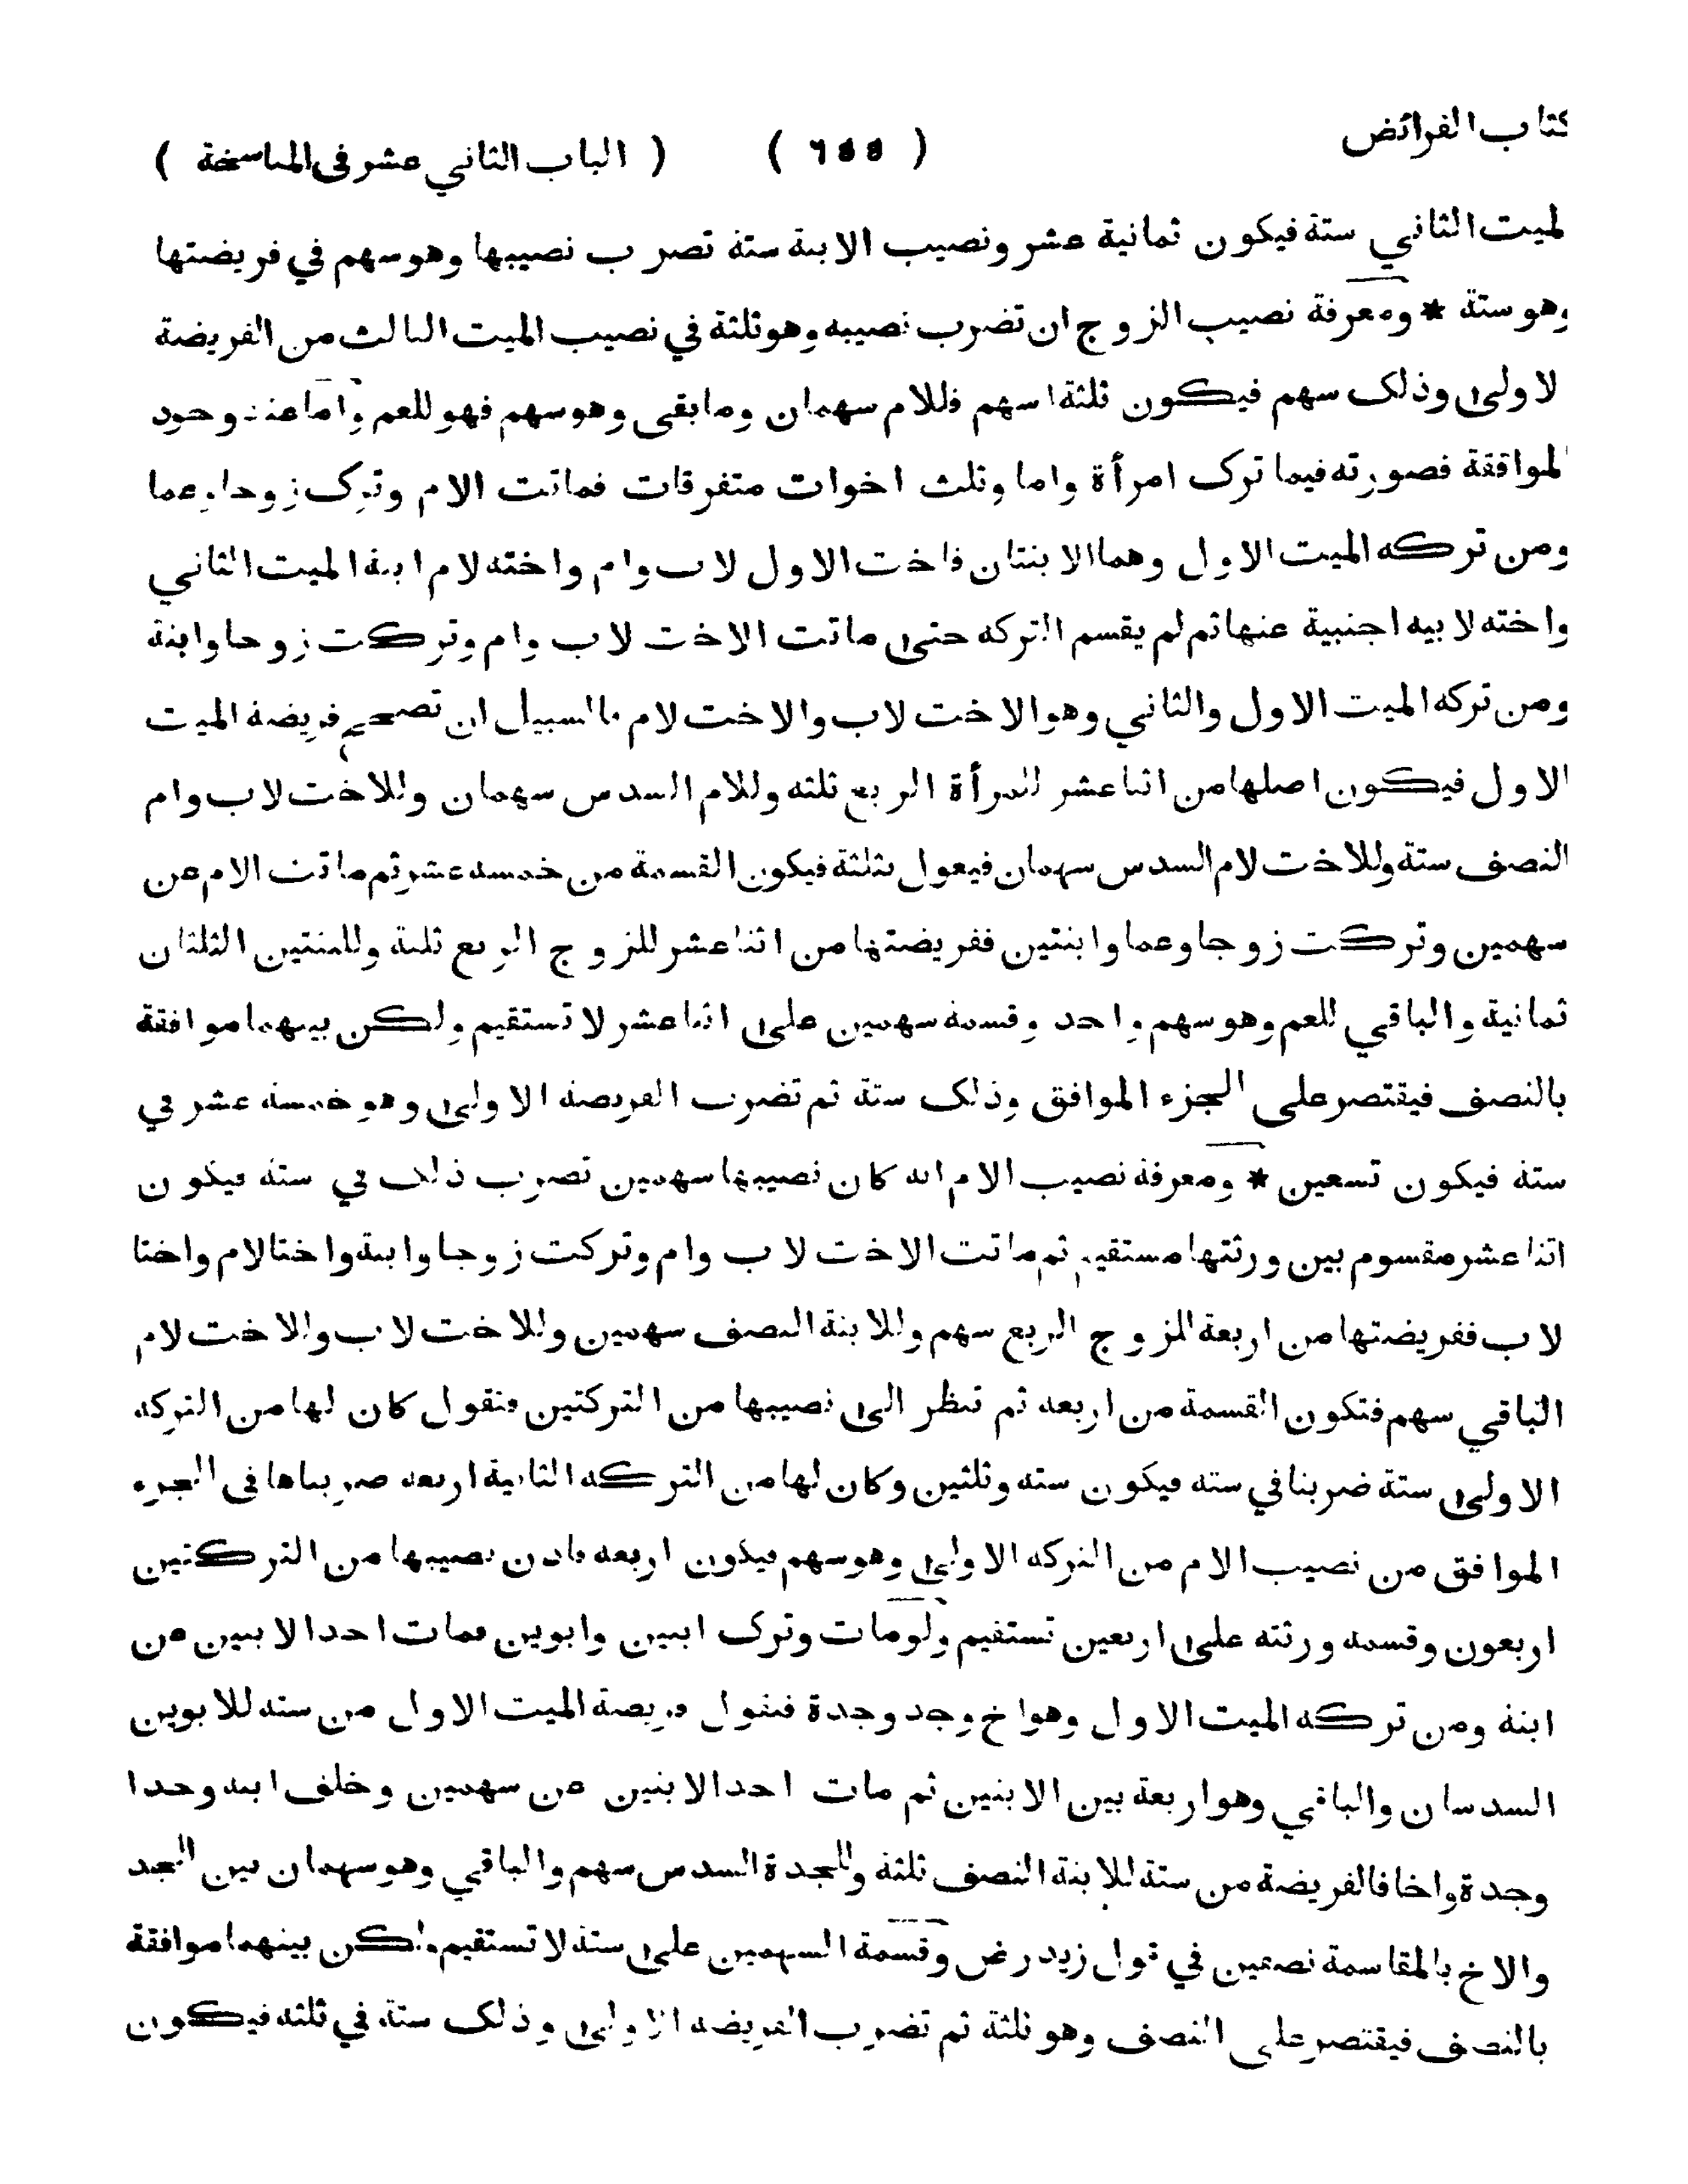 كتاب الفرائض ( ٦٥٥ ) ( الباب الثاني عشر في المناسخة )
لميت الثاني ستة فيكون ثمانية عشر ونصيب الابنة ستة تضرب نصيبها وهو سهم في فريضتها
وهو ستة * ومعرفة نصيب الزوج ان تضرب نصيبه وهو ثلثة في نصيب الميت الثالث من الفريضة
لاولى وذلك سهم فيكون ثلثة اسهم فللام سهمان وما بقى وهو سهم فهو للعم واما عند وجود
لموافقة فصورته فيما ترك امرأة واما وثلث اخوات متفرقات فماتت الام وترك زوجا وعما
ومن تركه الميت الاول وهما الابنتان فاخت الاول لاب وام واخته لام ابنة الميت الثاني
واخته لابيه اجنبية عنها ثم لم يقسم التركه حتى ماتت الاخت لاب وام وتركت زوجا وابنة
ومن تركه الميت الاول والثاني وهو الاخت لاب والاخت لام فالسبيل ان تصحح فريضة الميت
الاول فيكون اصلها من اثنا عشر للمرأة الربع ثلثه وللام السدس سهمان وللاخت لاب وام
النصف ستة وللاخت لام السدس سهمان فيعول بثلثة فيكون القسمة من خمسه عشر ثم ماتت الام عن
سهمين وتركت زوجا وعما وابنتين ففريضتها من اثنا عشر للزوج الربع ثلثة وللبنتين الثلثان
ثمانية والباقي للعم وهو سهم واحد وقسمة سهمين على اثنا عشر لا تستقيم ولكن بينهما موافقة
بالنصف فيقتصر على الجزء الموافق وذلك ستة ثم تضرب الفريضة الاولى وهو خمسة عشر في
ستة فيكون تسعين * ومعرفة نصيب الام انه كان نصيبها سهمين تضرب ذلك في ستة فيكون
اثنا عشر مقسوم بين ورثتها مستقيم ثم ماتت الاخت لاب وام وتركت زوجا وابنة واختا لام واختا
لاب ففريضتها من اربعة للزوج الربع سهم وللابنة النصف سهمين وللاخت لاب والاخت لام
الباقي سهم فتكون القسمة من اربعه ثم تنظر الى نصيبها من التركتين فنقول كان لها من التركه
الاولى ستة ضربنا في سته فيكون سته وثلثين وكان لها من التركه الثانية اربعه ضربناها في الجزء
الموافق من نصيب الام من التركه الاولى وهو سهم فيكون اربعه فادن نصيبها من التركتين
اربعون وقسمه ورثته على اربعين تستقيم ولو مات وترك ابنين وابوين فمات احد الابنين عن
ابنة ومن تركه الميت الاول وهو اخ وجد وجدة فنقول فريضة الميت الاول من سته للابوين
السدسان والباقي وهو اربعة بين الابنين ثم مات احد الابنين عن سهمين وخلف ابنه وجدا
وجدة واخا فالفريضة من ستة للابنة النصف ثلثة وللجدة السدس سهم والباقي وهو سهمان بين الجد
والاخ بالمقاسمة نصفين في قول زيد رض وقسمة السهمين على ستة لا تستقيم ولكن بينهما موافقة
بالنصف فيقتصر على النصف وهو ثلثة ثم تضرب الفريضه الاولى وذلك ستة في ثلثه فيكون